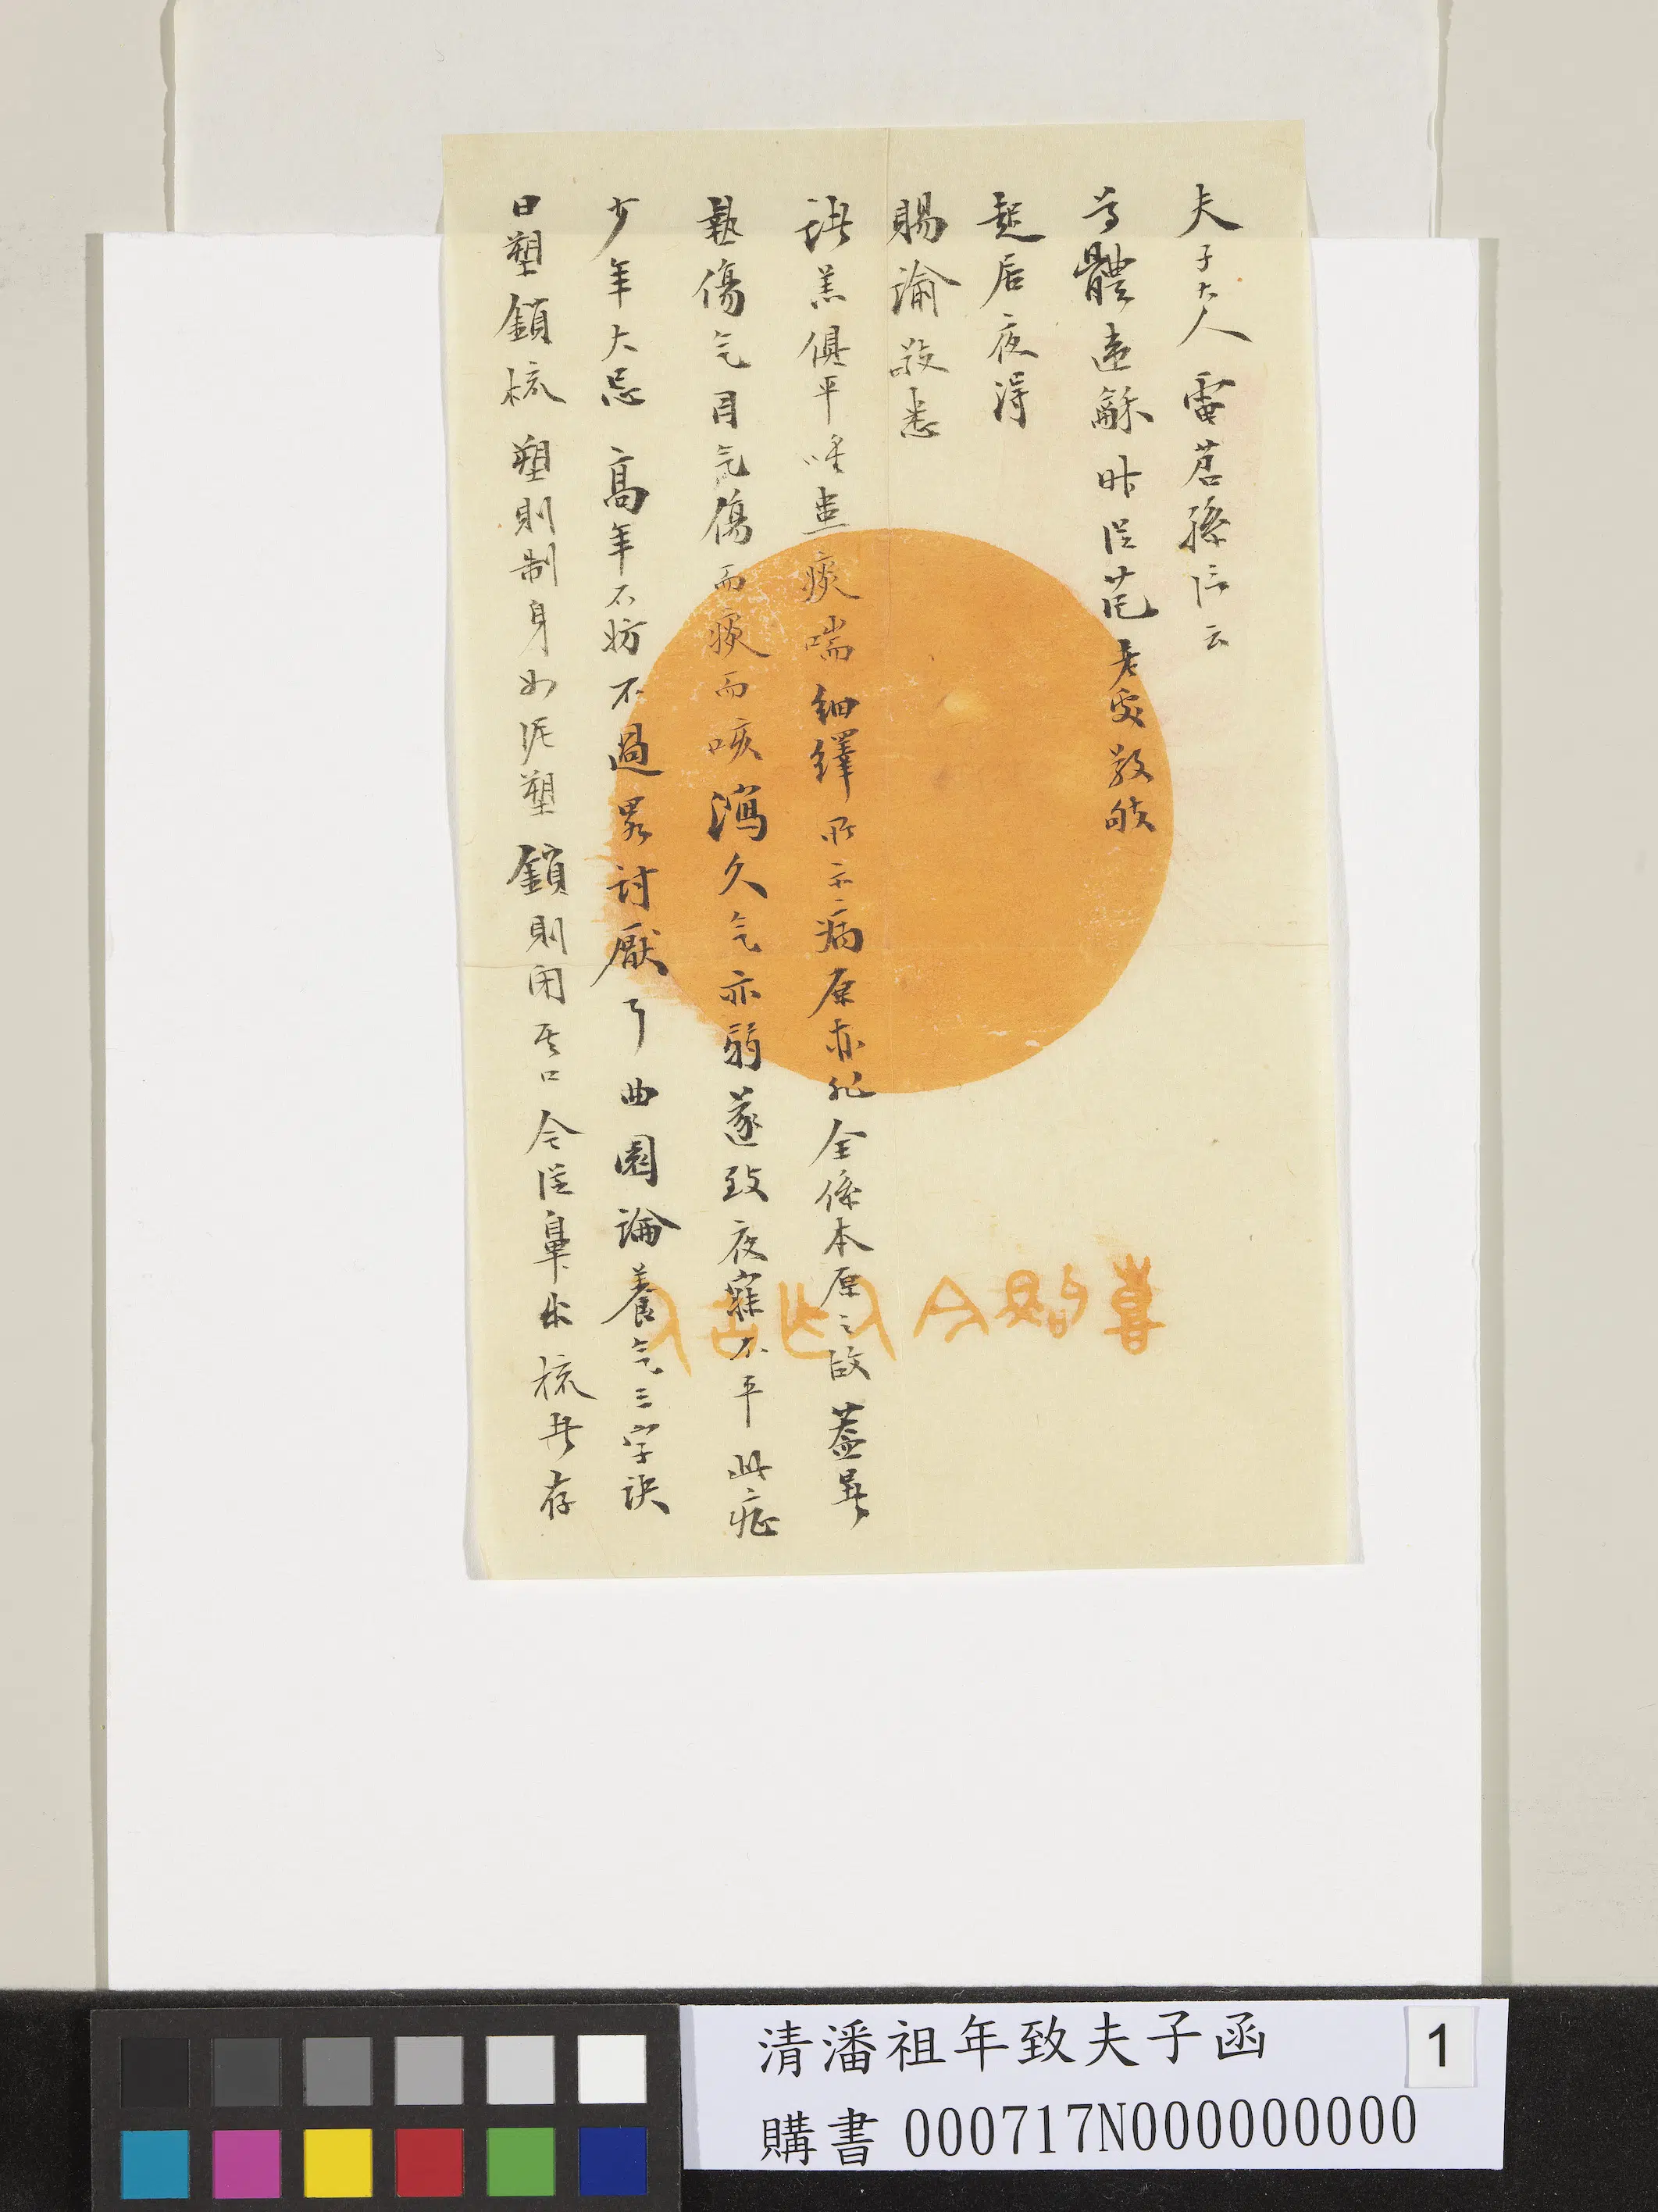 夫子大人 雷茗孫信云
尊體違龢昨從范卿處敬敂
起居夜得
賜諭敬悉
諸羔俱平唯患痰喘細繹所示病原亦非全係本原之故蓋異
熱傷气胃气傷而痰而咳瀉久气亦弱遂致夜寐不平此症
少年大忌高年不妨不過累討厭了曲園論養气三字訣
曰塑鎖梳塑則制身如泥塑鎖則閉其口令從鼻出梳者存
清潘祖年致夫子函
1
購書 000717N000000000